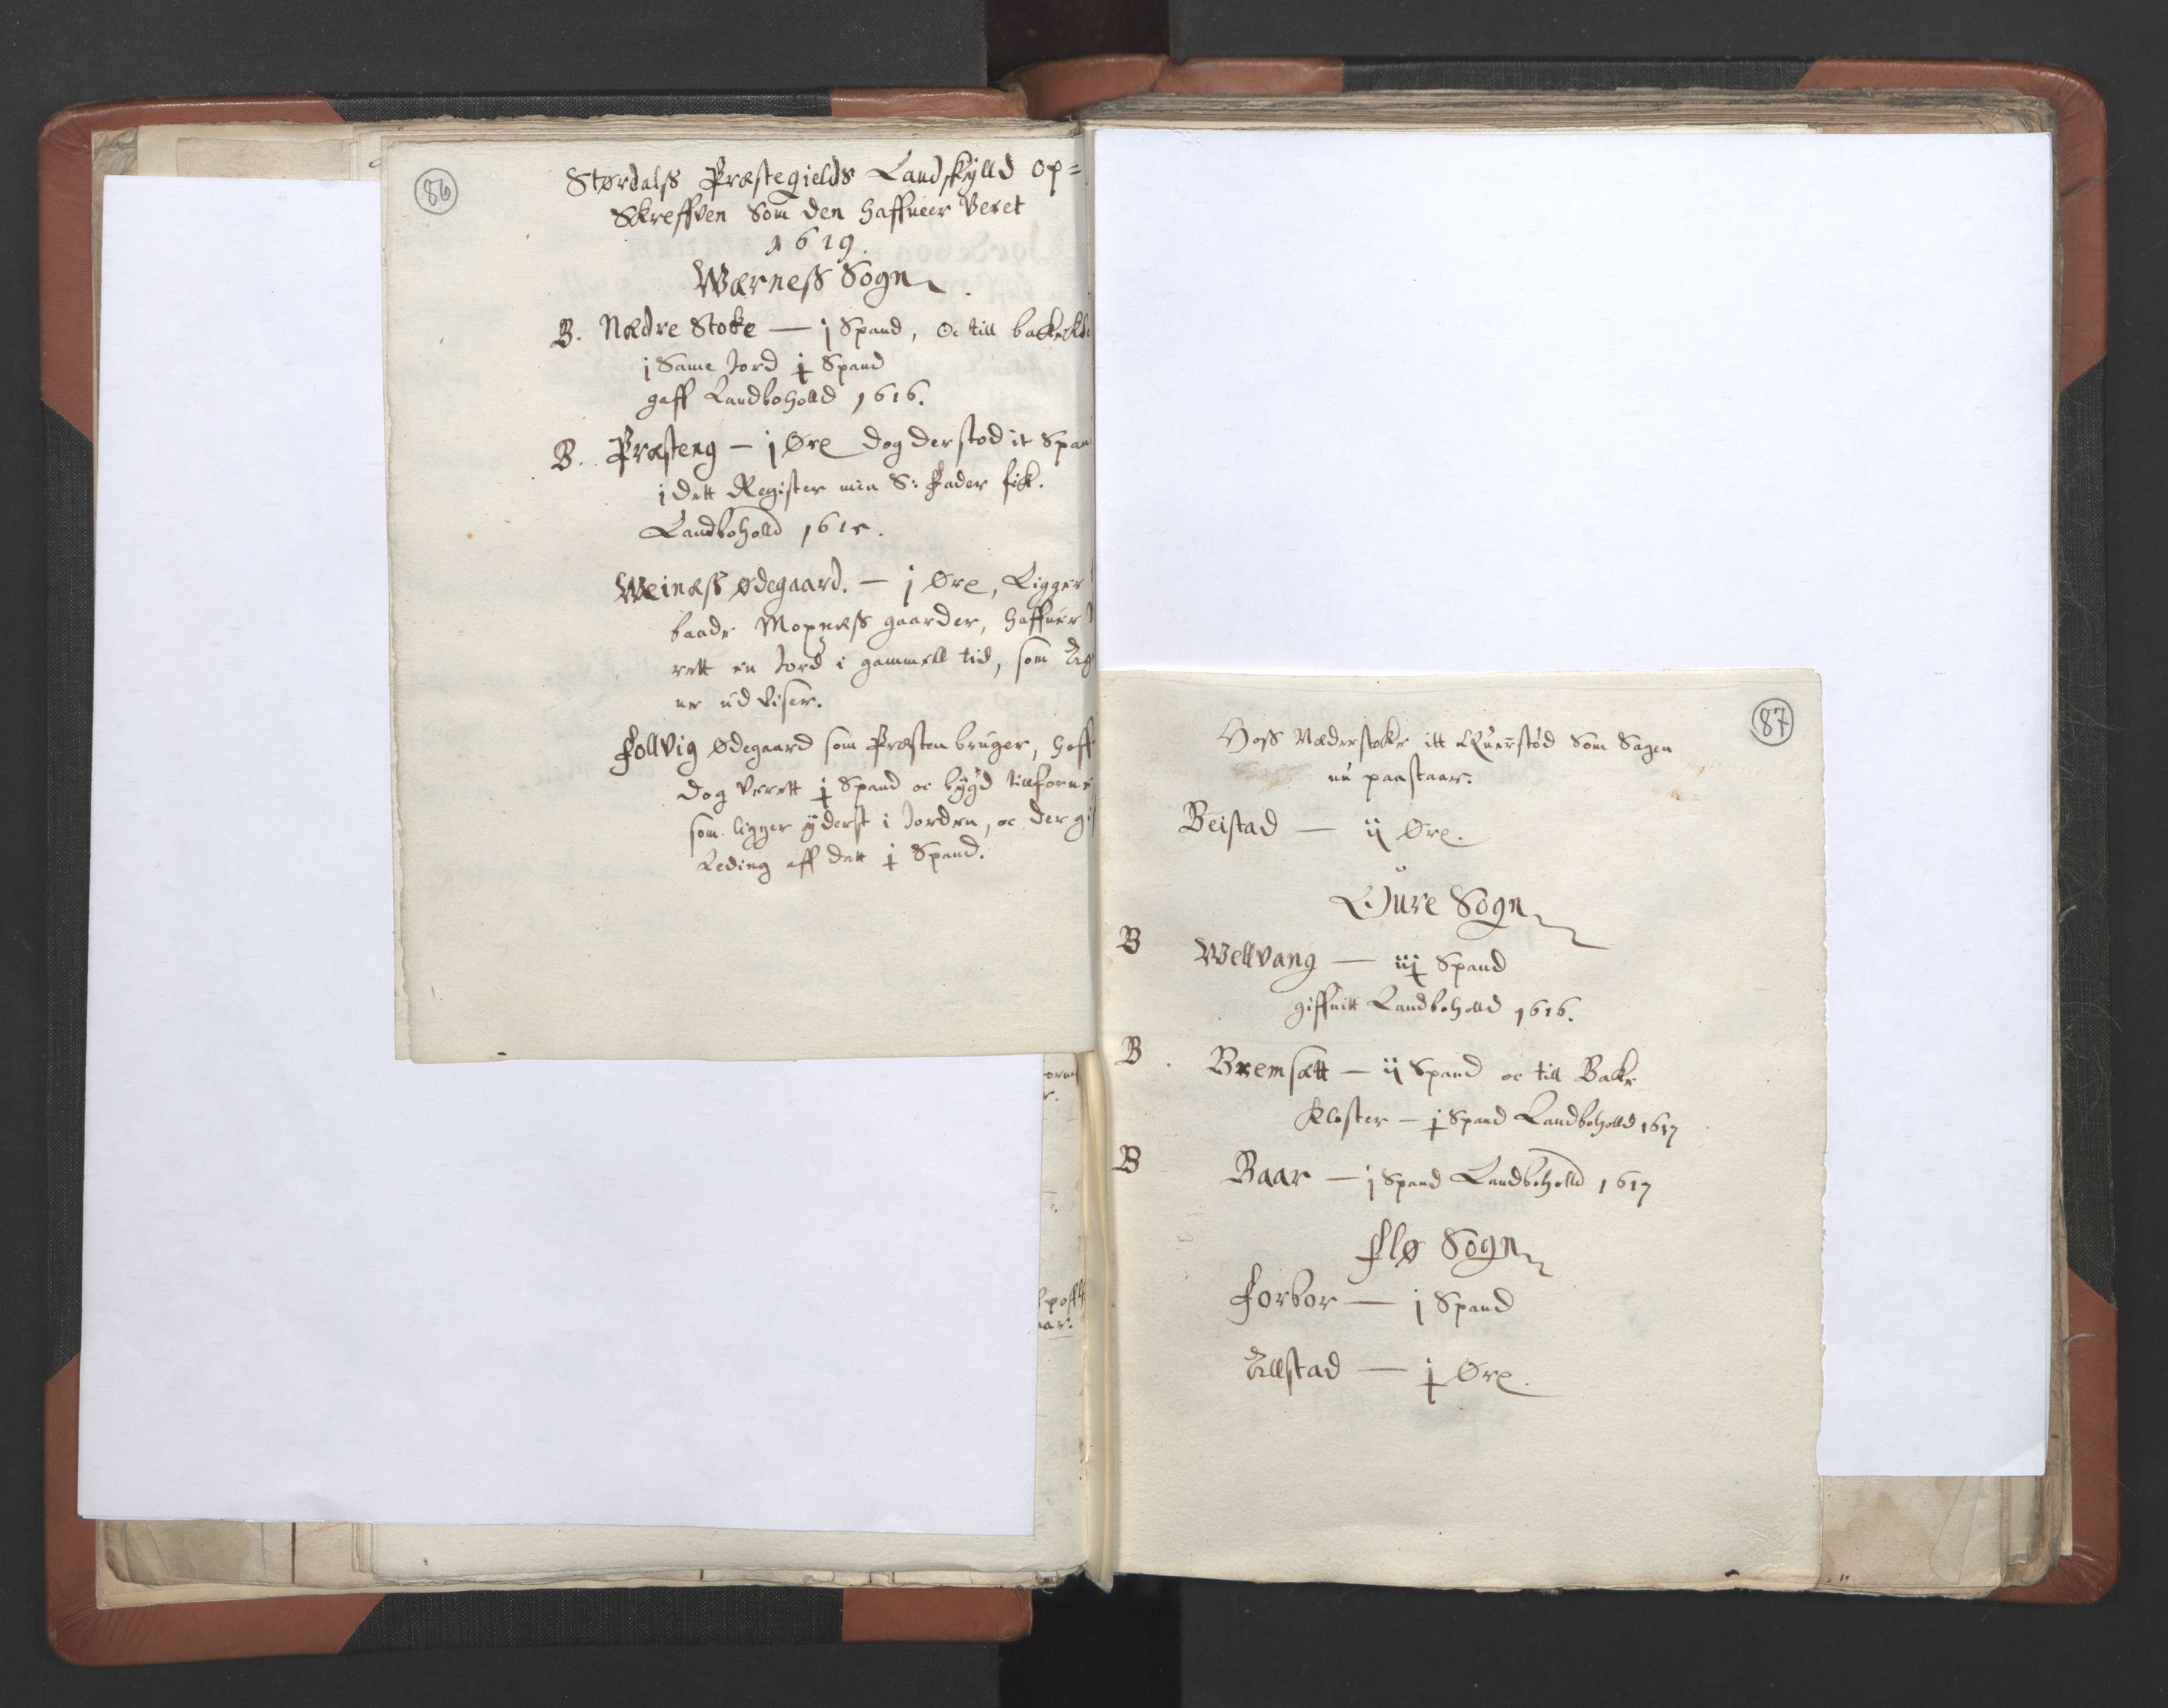 86
Størdalss Præstegields Landskylld op=
Skreffven Som den haffuer Veret
1619.
Wærness Sogn
B. Nædre Stoke — j Spand, oc till bakeklo
j Same Jord ɉ Spand
gaff Landboholld 1616.
B. Præsteng — j Øre dog der stod it Span
i dett Register min S: Fader fik.
Landboholld 1615.
Weinæss ødegaard. — j Øre, Ligger
baade Mopnæss gaarder, haffuer
rett en Jord i gammell tid, som
ne udviser.
Follvig ødegaard som Præsten bruger, haff
dog verett ɉ Spand oc bygd tillforne
som ligger yderst i Jorden, oc der gi
Leding aff dett ɉ Spand.
87
Hoss Næderstoke itt Querstød Som Sagen
nu paastaar.
Beistad — ij Øre.
Øure Sogn
B Wellvang — iiɉ Spand
giffuitt Landboholld 1616.
B Bremsætt — ij Spand oc till Bake
Kloster — ɉ Spand Landboholld 1617
B Baar — j Spand Landboholld 1617
Flø Sogn
Forbor — j Spand
Allstad — ɉ Øre.